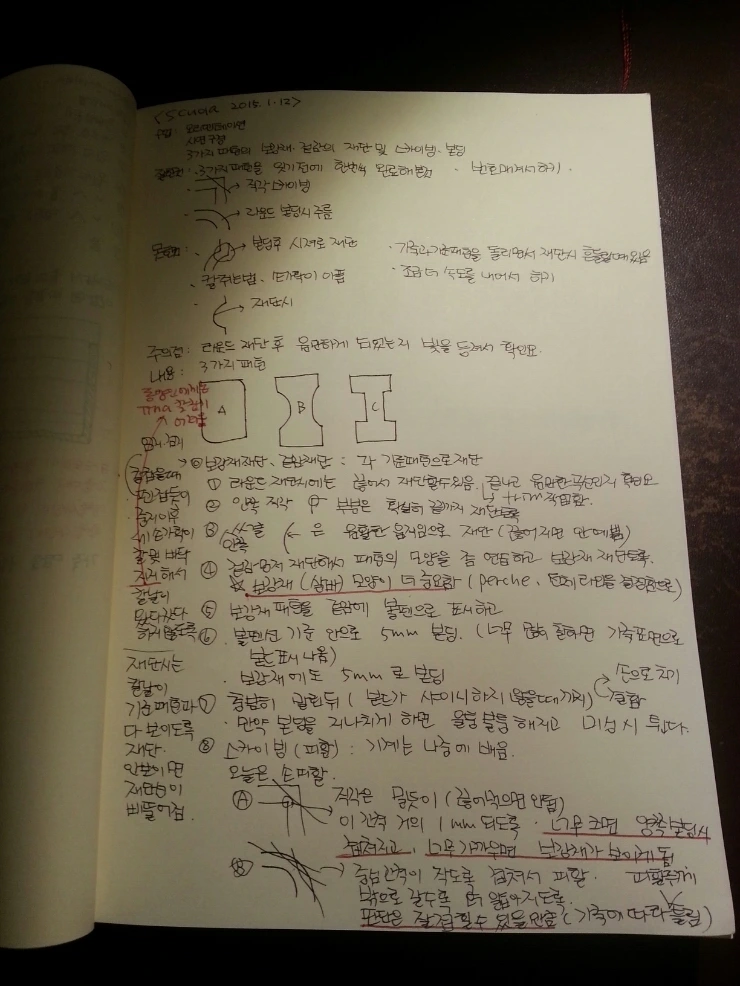 <Scuola 2015. 1. 12>
수업: 오리엔테이션
사면구성
3가지 패턴의 보강재, 겉감의 재단 및 스카이빙, 본딩
잘된점: · 3가지 패턴을 맞기전에 한번씩 완료해봤
하기.
· → 직각 스카이빙
· → 라운드 본딩시 주름
· → 본딩후 시저로 재단
· 가죽과 기준패턴을 돌리면서 재단시 흔들릴때 있음
· 칼 손가락이 아픔
· 조금더 속도를 내어서 하기
· 재단시
주의점: 라운드 재단후 완만하게 되었는지 빛을 등져서 확인요.
내용: 3가지 패턴
A B C
⓪ 보강재재단, 겉감재단 : 각 기준패턴으로 재단
① 라운드 재단시에는 끊어서 재단할수있음. 끝나고 완만한 곡선인지 확인요
② 안쪽 직각 부분은 확실히 끝까지 재단토록
↳ trim 작업함.
③ 안쪽 은 유활한 움직임으로 재단 (끊어지면 안예쁨)
④ 겉감먼저 재단해서 패턴의 모양을 좀 연습하고 보강재 재단토록.
☆ 보강재 (살파) 모양이 더 중요함 (perche,
⑤ 보강재 패턴을 겉감에 볼펜으로 표시하고
⑥ 볼펜선 기준 안으로 5mm 본딩. (너무 많이 칠하면 가죽표면으로
본드표시 나옴)
· 보강재에도 5mm로 본딩
⑦ 충분히 말린뒤 (본드가 샤이니하지 않을때까지) 손으로 치기
결합
· 만약 본딩을 지나치게 하면 울퉁불퉁해지고 미싱시 튄다.
⑧ 스카이빙 (피할) : 기계는 나중에 배움.
오늘은 손피할.
Ⓐ 직각은 밀듯이 (끊어먹으면 안됨)
이 간격 거의 1mm 되도록. 너무 크면 양쪽 본딩시
겹쳐지고, 너무 가까우면 보강재가 보이게 됨
Ⓑ 중심간격이 작도록 겹쳐서 피할.
밖으로 갈수록 더 얇아지도록.
판단은 잘 접힐수 있을만큼 (가죽에 따라 틀림)
칼잡을때
펜잡듯이
세손가락이
칼 및 바닥
지지해서
칼날이
왔다갔다
하지않도록
재단시는
칼날이
기준패턴과
다 보이도록
재단.
안보이면
재단이
삐뚤어짐